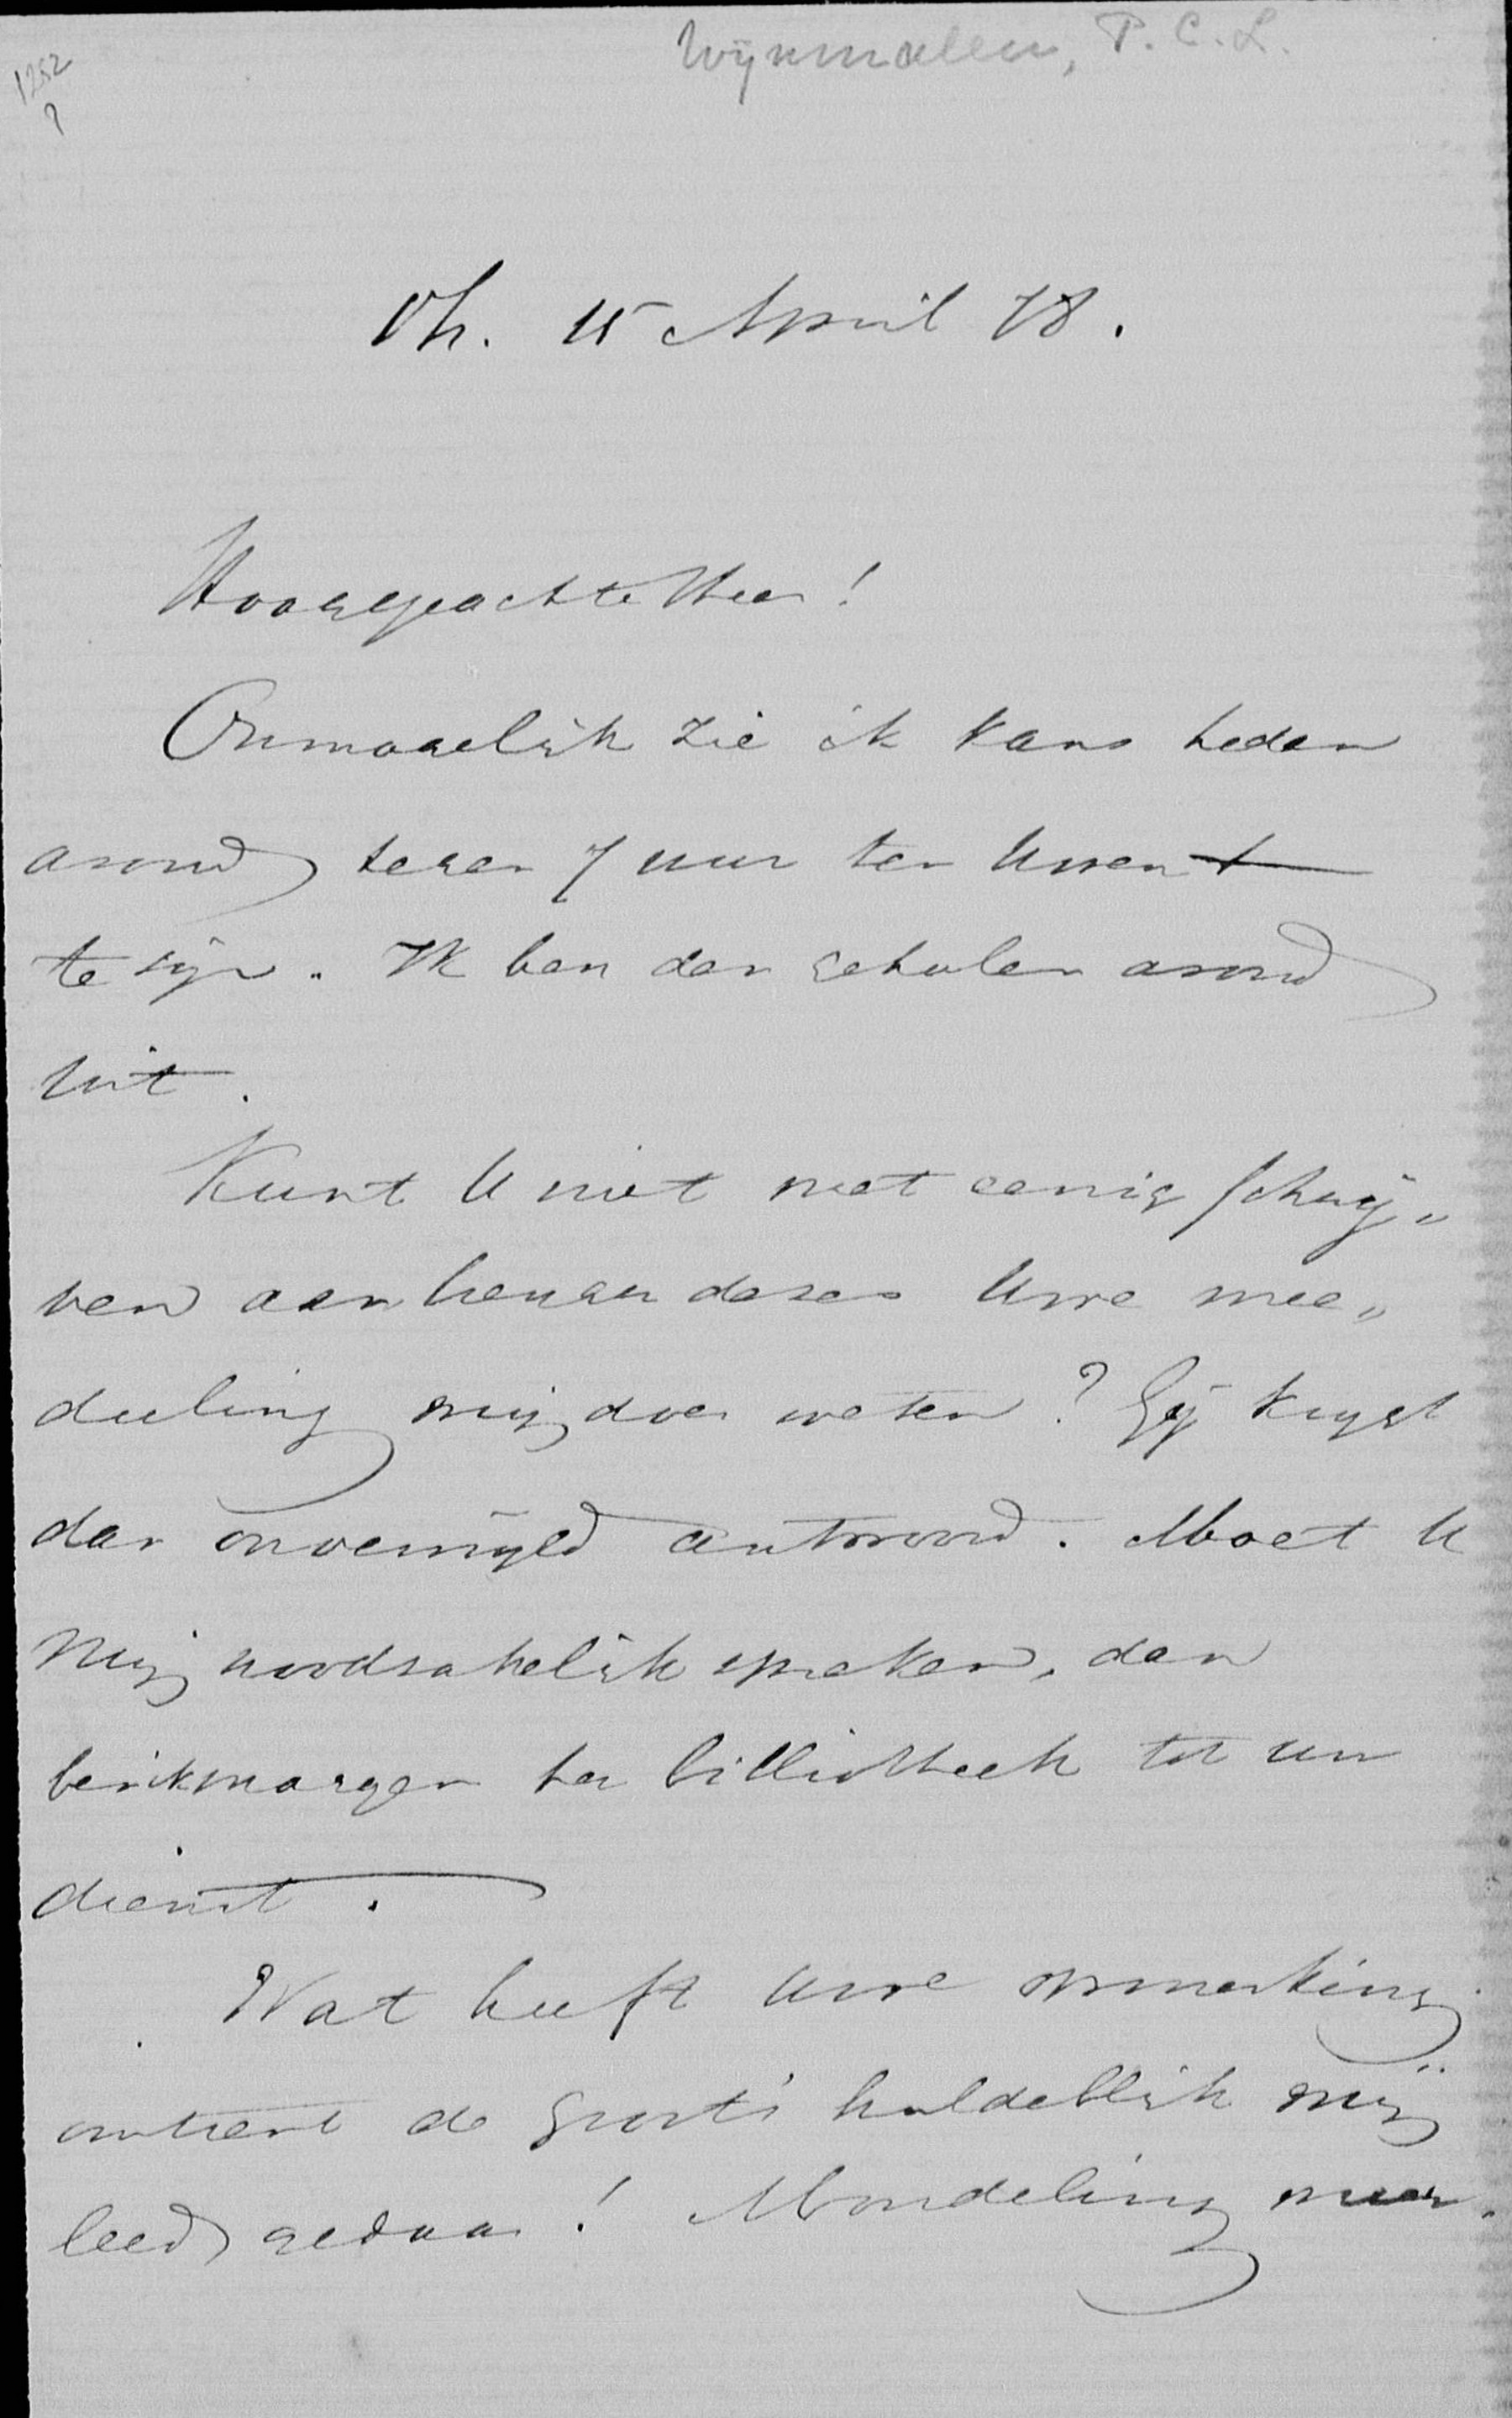 Wijnmalen, P. C. L.
1252
?
Vh. 15 April 78.
Hooggeachte Heer!
Onmogelijk zie ik kans heden
avond tegen 7 uur ten Uwent
te zijn. Ik ben den geheelen avond
uit.
Kunt U niet met eenig schrij„
ven aan brenger dezes Uwe mee„
deeling mij doen weten? Gij krijgt
dan onverwijld antwoord. Moet U
mij noodzakelijk spreken, dan
ben ik morgen ter bibliotheek tot uw
dienst.
Wat heeft Uwe opmerking
omtrent de Groot's huldeblijk mij
leed gedaan! Mondeling meer.